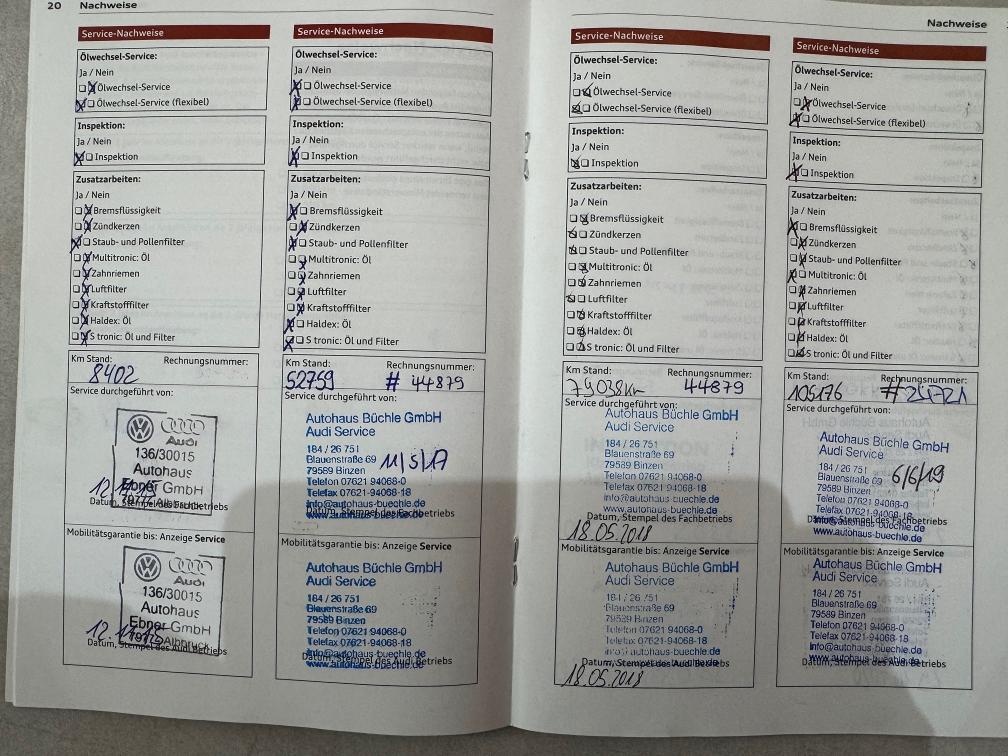 20 Nachweise
Service-Nachweise
Ölwechsel-Service:
Ja / Nein
Ölwechsel-Service
Ölwechsel-Service (flexibel)
Inspektion:
Ja / Nein
Inspektion
Zusatzarbeiten:
Ja / Nein
Bremsflüssigkeit
Zündkerzen
Staub- und Pollenfilter
Multitronic: Öl
Zahnriemen
Luftfilter
Kraftstofffilter
Haldex: Öl
S tronic: Öl und Filter
Km Stand: Rechnungsnummer:
8402
Service durchgeführt von:
Audi
136/30015
Autohaus
Ebner GmbH
Datum, Stempel des Fachbetriebs
Mobilitätsgarantie bis: Anzeige Service
Audi
136/30015
Autohaus
Ebner GmbH
Albbruck
Datum, Stempel des Audi Betriebs
Service-Nachweise
Ölwechsel-Service:
Ja / Nein
Ölwechsel-Service
Ölwechsel-Service (flexibel)
Inspektion:
Ja / Nein
Inspektion
Zusatzarbeiten:
Ja / Nein
Bremsflüssigkeit
Zündkerzen
Staub- und Pollenfilter
Multitronic: Öl
Zahnriemen
Luftfilter
Kraftstofffilter
Haldex: Öl
S tronic: Öl und Filter
Km Stand: Rechnungsnummer:
52759 # 44879
Service durchgeführt von:
Autohaus Büchle GmbH
Audi Service
184 / 26 751
Blauenstraße 69 11/5/17
79589 Binzen
Telefon 07621 94068-0
Telefax 07621 94068-18
info@autohaus-buechle.de
www.autohaus-buechle.de
Datum, Stempel des Fachbetriebs
Mobilitätsgarantie bis: Anzeige Service
Autohaus Büchle GmbH
Audi Service
184 / 26 751
Blauenstraße 69
79589 Binzen
Telefon 07621 94068-0
Telefax 07621 94068-18
info@autohaus-buechle.de
www.autohaus-buechle.de
Datum, Stempel des Audi Betriebs
Nachweise
Service-Nachweise
Ölwechsel-Service:
Ja / Nein
Ölwechsel-Service
Ölwechsel-Service (flexibel)
Inspektion:
Ja / Nein
Inspektion
Zusatzarbeiten:
Ja / Nein
Bremsflüssigkeit
Zündkerzen
Staub- und Pollenfilter
Multitronic: Öl
Zahnriemen
Luftfilter
Kraftstofffilter
Haldex: Öl
S tronic: Öl und Filter
Km Stand: Rechnungsnummer:
79038km 44879
Service durchgeführt von:
Autohaus Büchle GmbH
Audi Service
184 / 26 751
Blauenstraße 69
79589 Binzen
Telefon 07621 94068-0
Telefax 07621 94068-18
info@autohaus-buechle.de
Datum, Stempel des Fachbetriebs
18.05.2018
Mobilitätsgarantie bis: Anzeige Service
Autohaus Büchle GmbH
Audi Service
184 / 26 751
Blauenstraße 69
79589 Binzen
Telefon 07621 94068-0
Telefax 07621 94068-18
info@autohaus-buechle.de
Datum, Stempel des Audi Betriebs
18.05.2018
Service-Nachweise
Ölwechsel-Service:
Ja / Nein
Ölwechsel-Service
Ölwechsel-Service (flexibel)
Inspektion:
Ja / Nein
Inspektion
Zusatzarbeiten:
Ja / Nein
Bremsflüssigkeit
Zündkerzen
Staub- und Pollenfilter
Multitronic: Öl
Zahnriemen
Luftfilter
Kraftstofffilter
Haldex: Öl
S tronic: Öl und Filter
Km Stand: Rechnungsnummer:
105176
Service durchgeführt von:
Autohaus Büchle GmbH
Audi Service
184 / 26 751 6/6/19
Blauenstraße 69
79589 Binzen
Telefon 07621 94068-0
Telefax 07621 94068-18
info@autohaus-buechle.de
Datum, Stempel des Fachbetriebs
www.autohaus-buechle.de
Mobilitätsgarantie bis: Anzeige Service
Autohaus Büchle GmbH
Audi Service
184 / 26 751
Blauenstraße 69
79589 Binzen
Telefon 07621 94068-0
Telefax 07621 94068-18
info@autohaus-buechle.de
www.autohaus-buechle.de
Datum, Stempel des Audi Betriebs